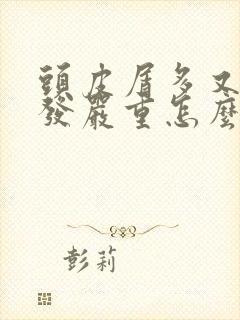 頭皮屑多又
發嚴重怎麼
彭莉